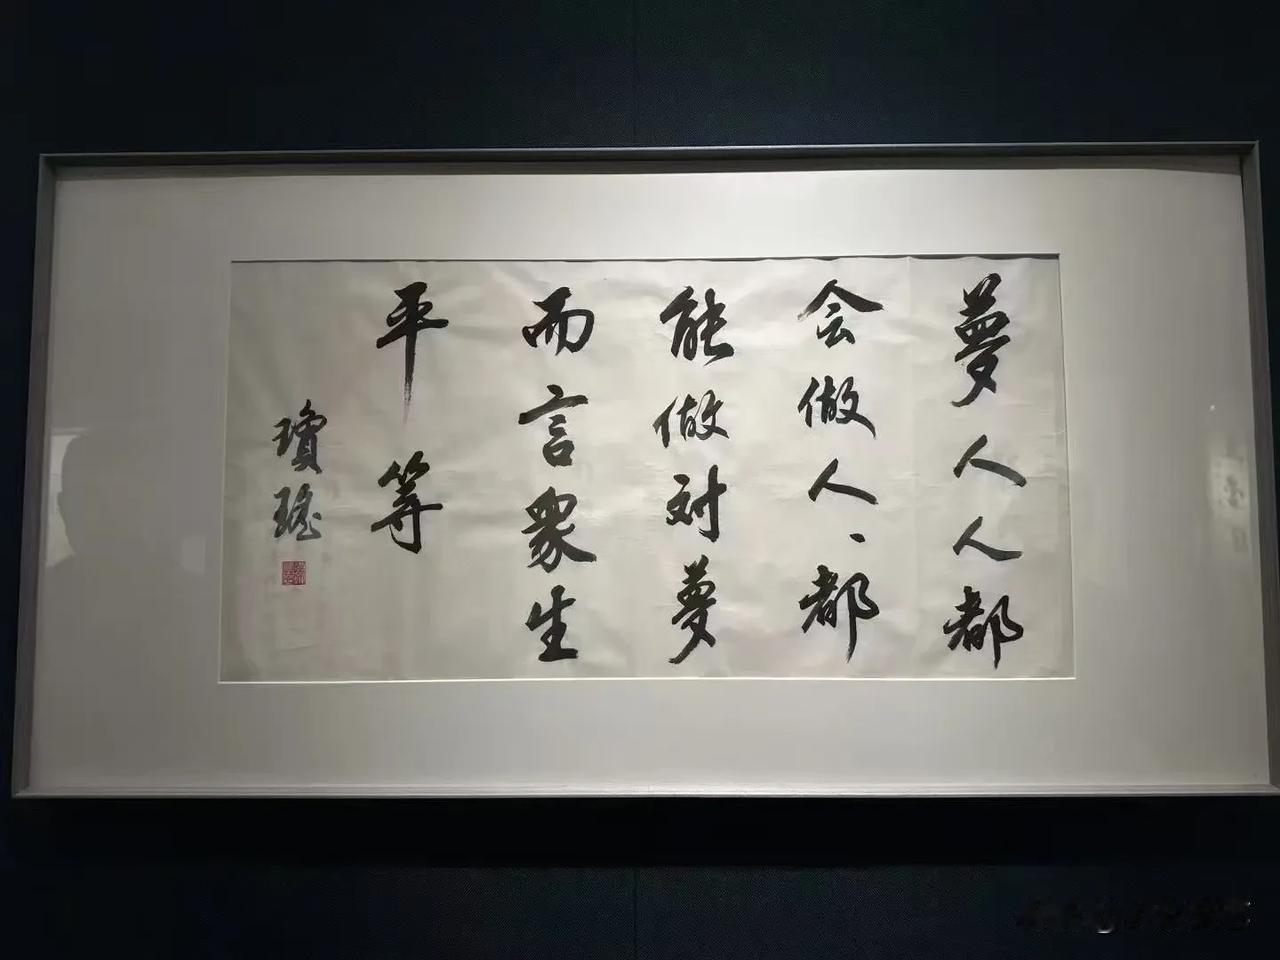 夢人人都
会做人、都
能做对夢
而言衆生
平等
瓊瑤